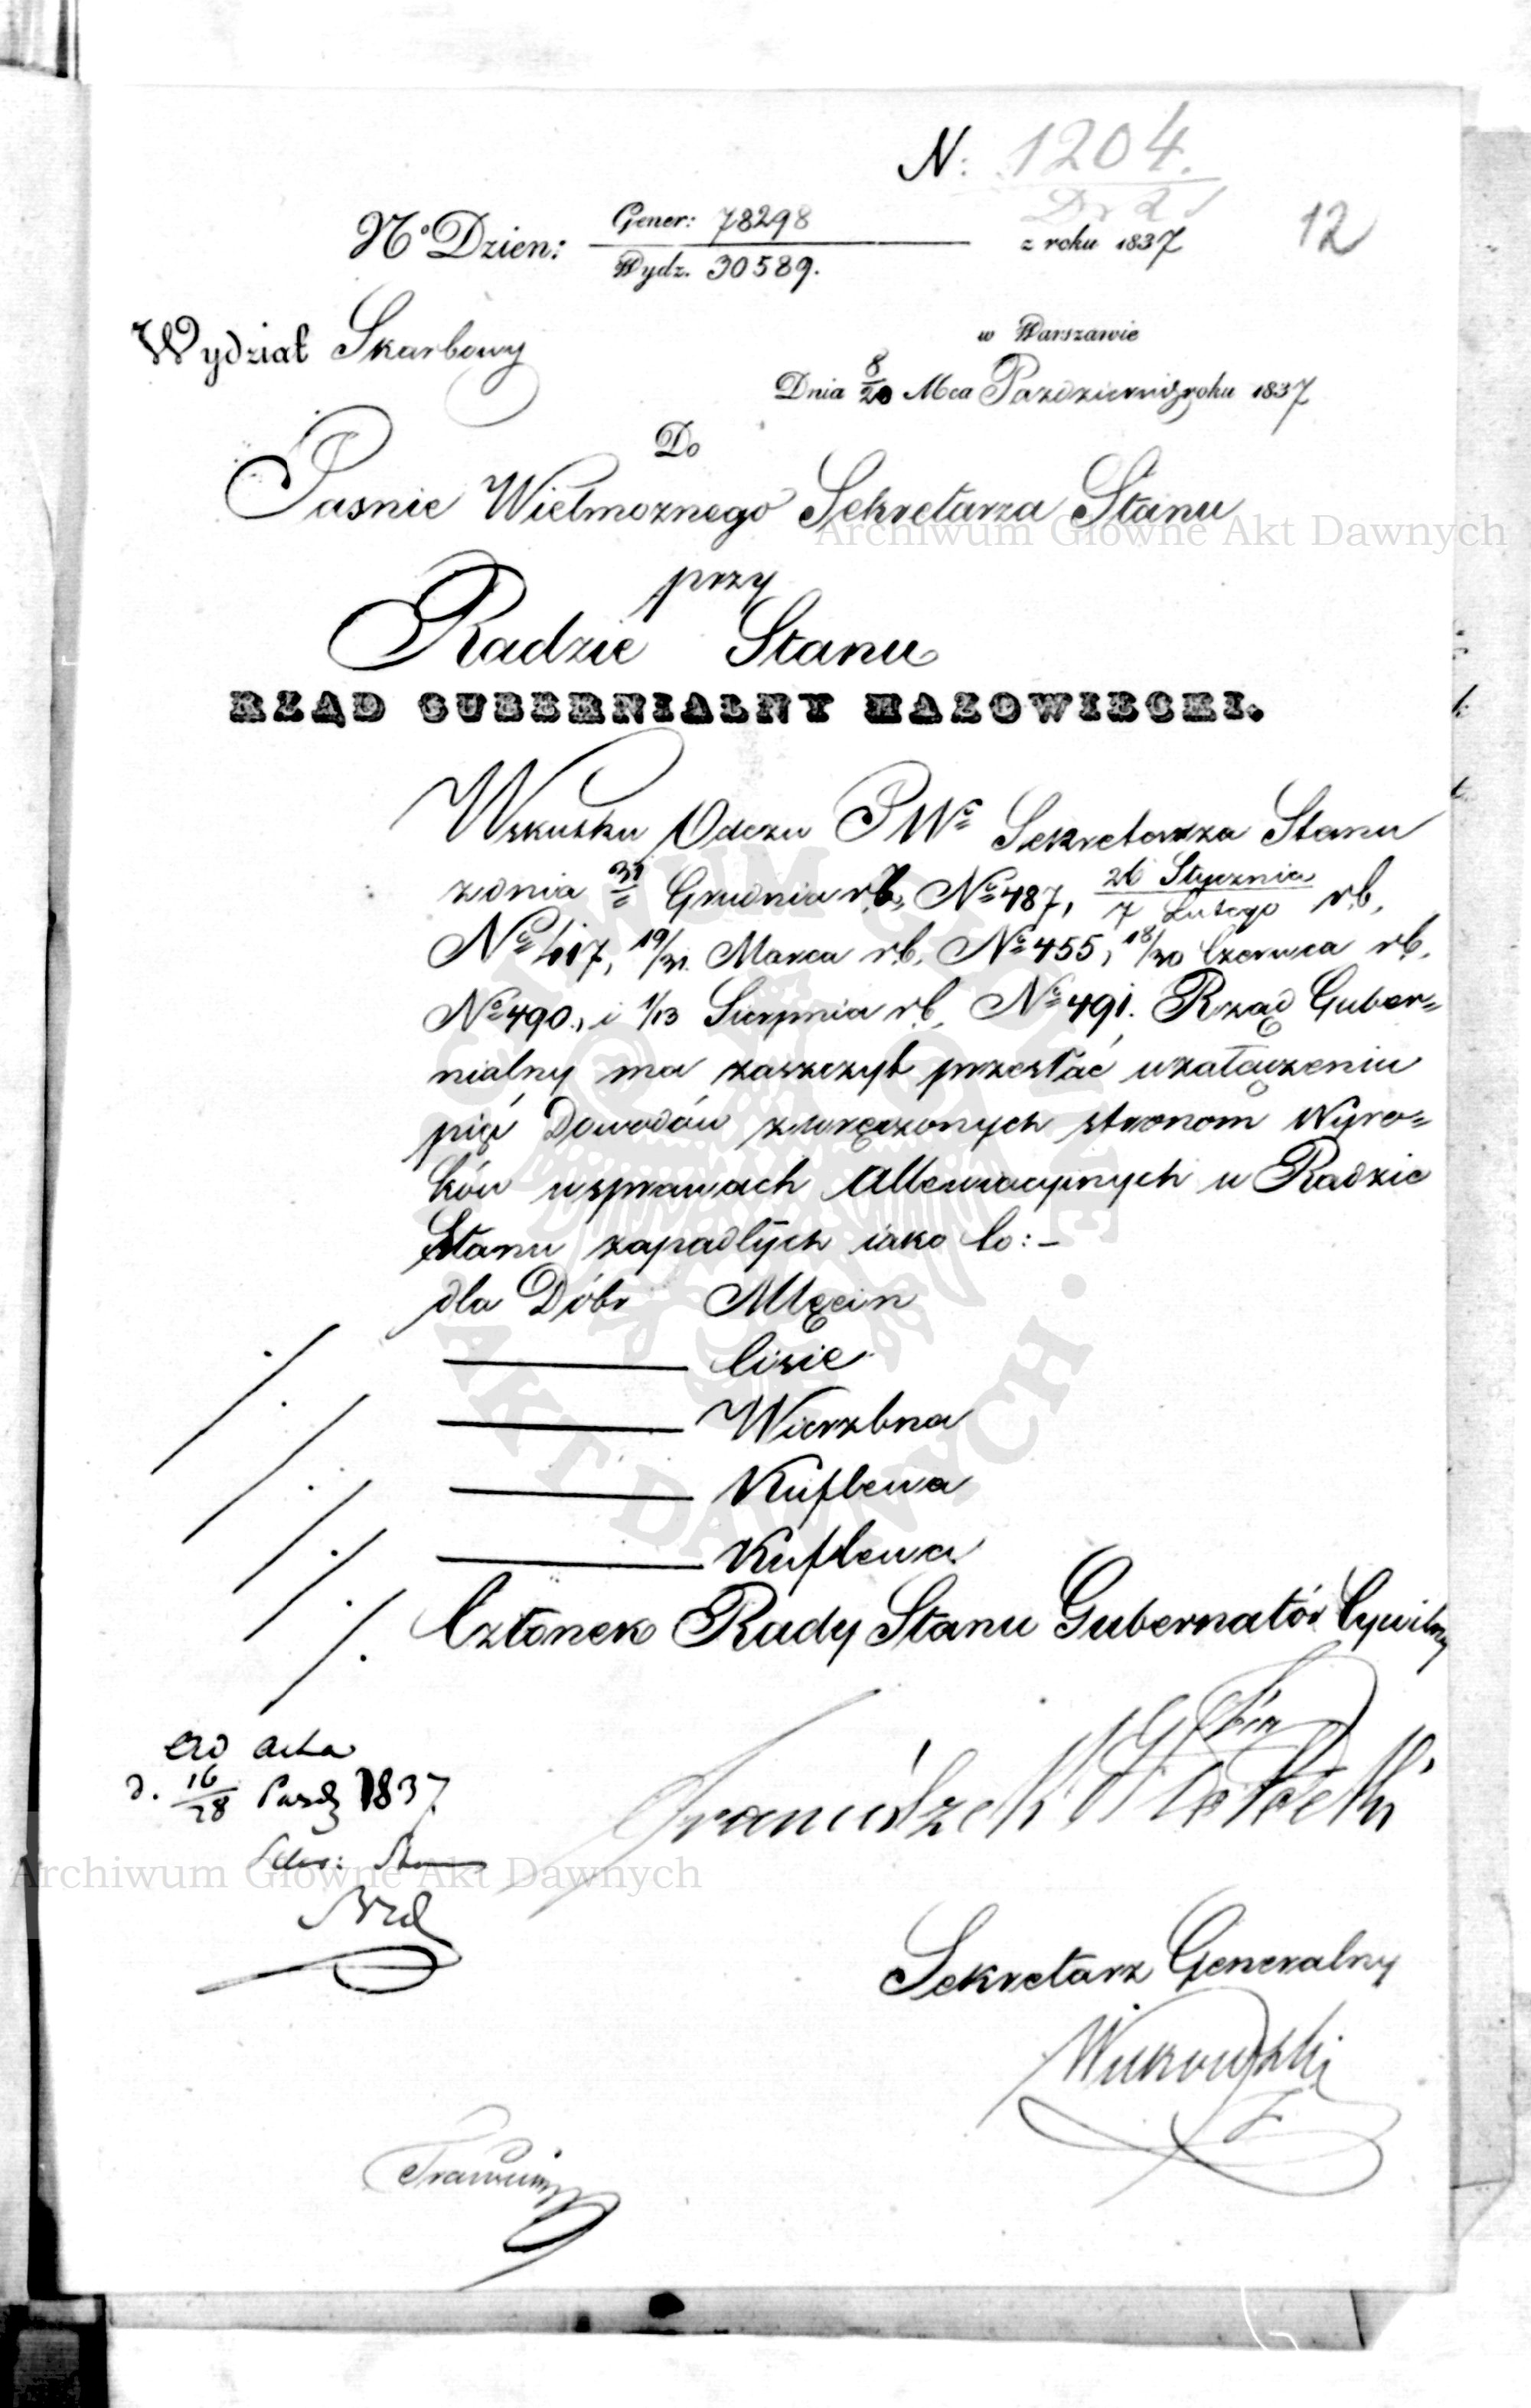 N: 1204.
N° Dzien: Gener: 78298
Wydz. 30589.
z roku 1837
12
Wydział Skarbowy
w Warszawie
Dnia 8/20 Mca Pazdziernik roku 1837
Do
Jasnie Wielmoznego Sekretarza Stanu
przy
Radzie Stanu
RZĄD GUBERNIALNY MAZOWIECKI.
Wskutku Odezw JWo Sekretarza Stanu
zdnia 31 Grudnia rb, No 487, 26 Stycznia/7 Lutego rb,
No 417, 19/31 Marca rb, No 455, 18/30 Czerwca rb,
No 490, i 1/13 Sierpnia rb, No 491. Rząd Guber=
nialny ma zaszczyt przesłać wzałączeniu
pięć Dowodów zwręczonych stronom Wyro=
ków wsprawach Allewiacyinych w Radzie
Stanu zapadłych iako to:-
dla Dóbr Mlęcin
Cisie
Wierzbna
Kuflewa
Kuflewa
Członek Rady Stanu Gubernatór Cywilny
Franciszek Potocki
ad acta
d. 16/28 Pazdz 1837
Sekretarz Generalny
Archiwum Główne Akt Dawnych
Archiwum Główne Akt Dawnych
ARCHIWUM GŁÓWNE AKT DAWNYCH